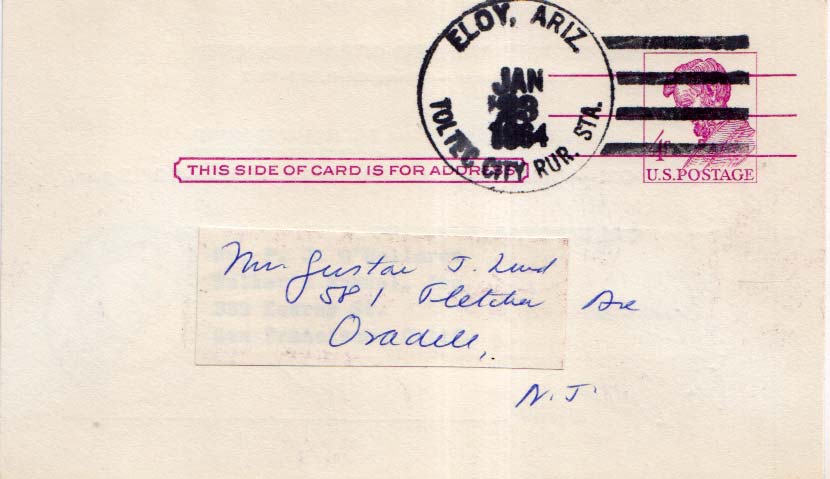 ELOY, ARIZ.
JAN
1964
TOLTEC CITY RUR. STA.
4¢
U.S. POSTAGE
THIS SIDE OF CARD IS FOR ADDRESS
Mr. Gustav J. Lund
581 Fletcher Ave
Oradell,
N.J.